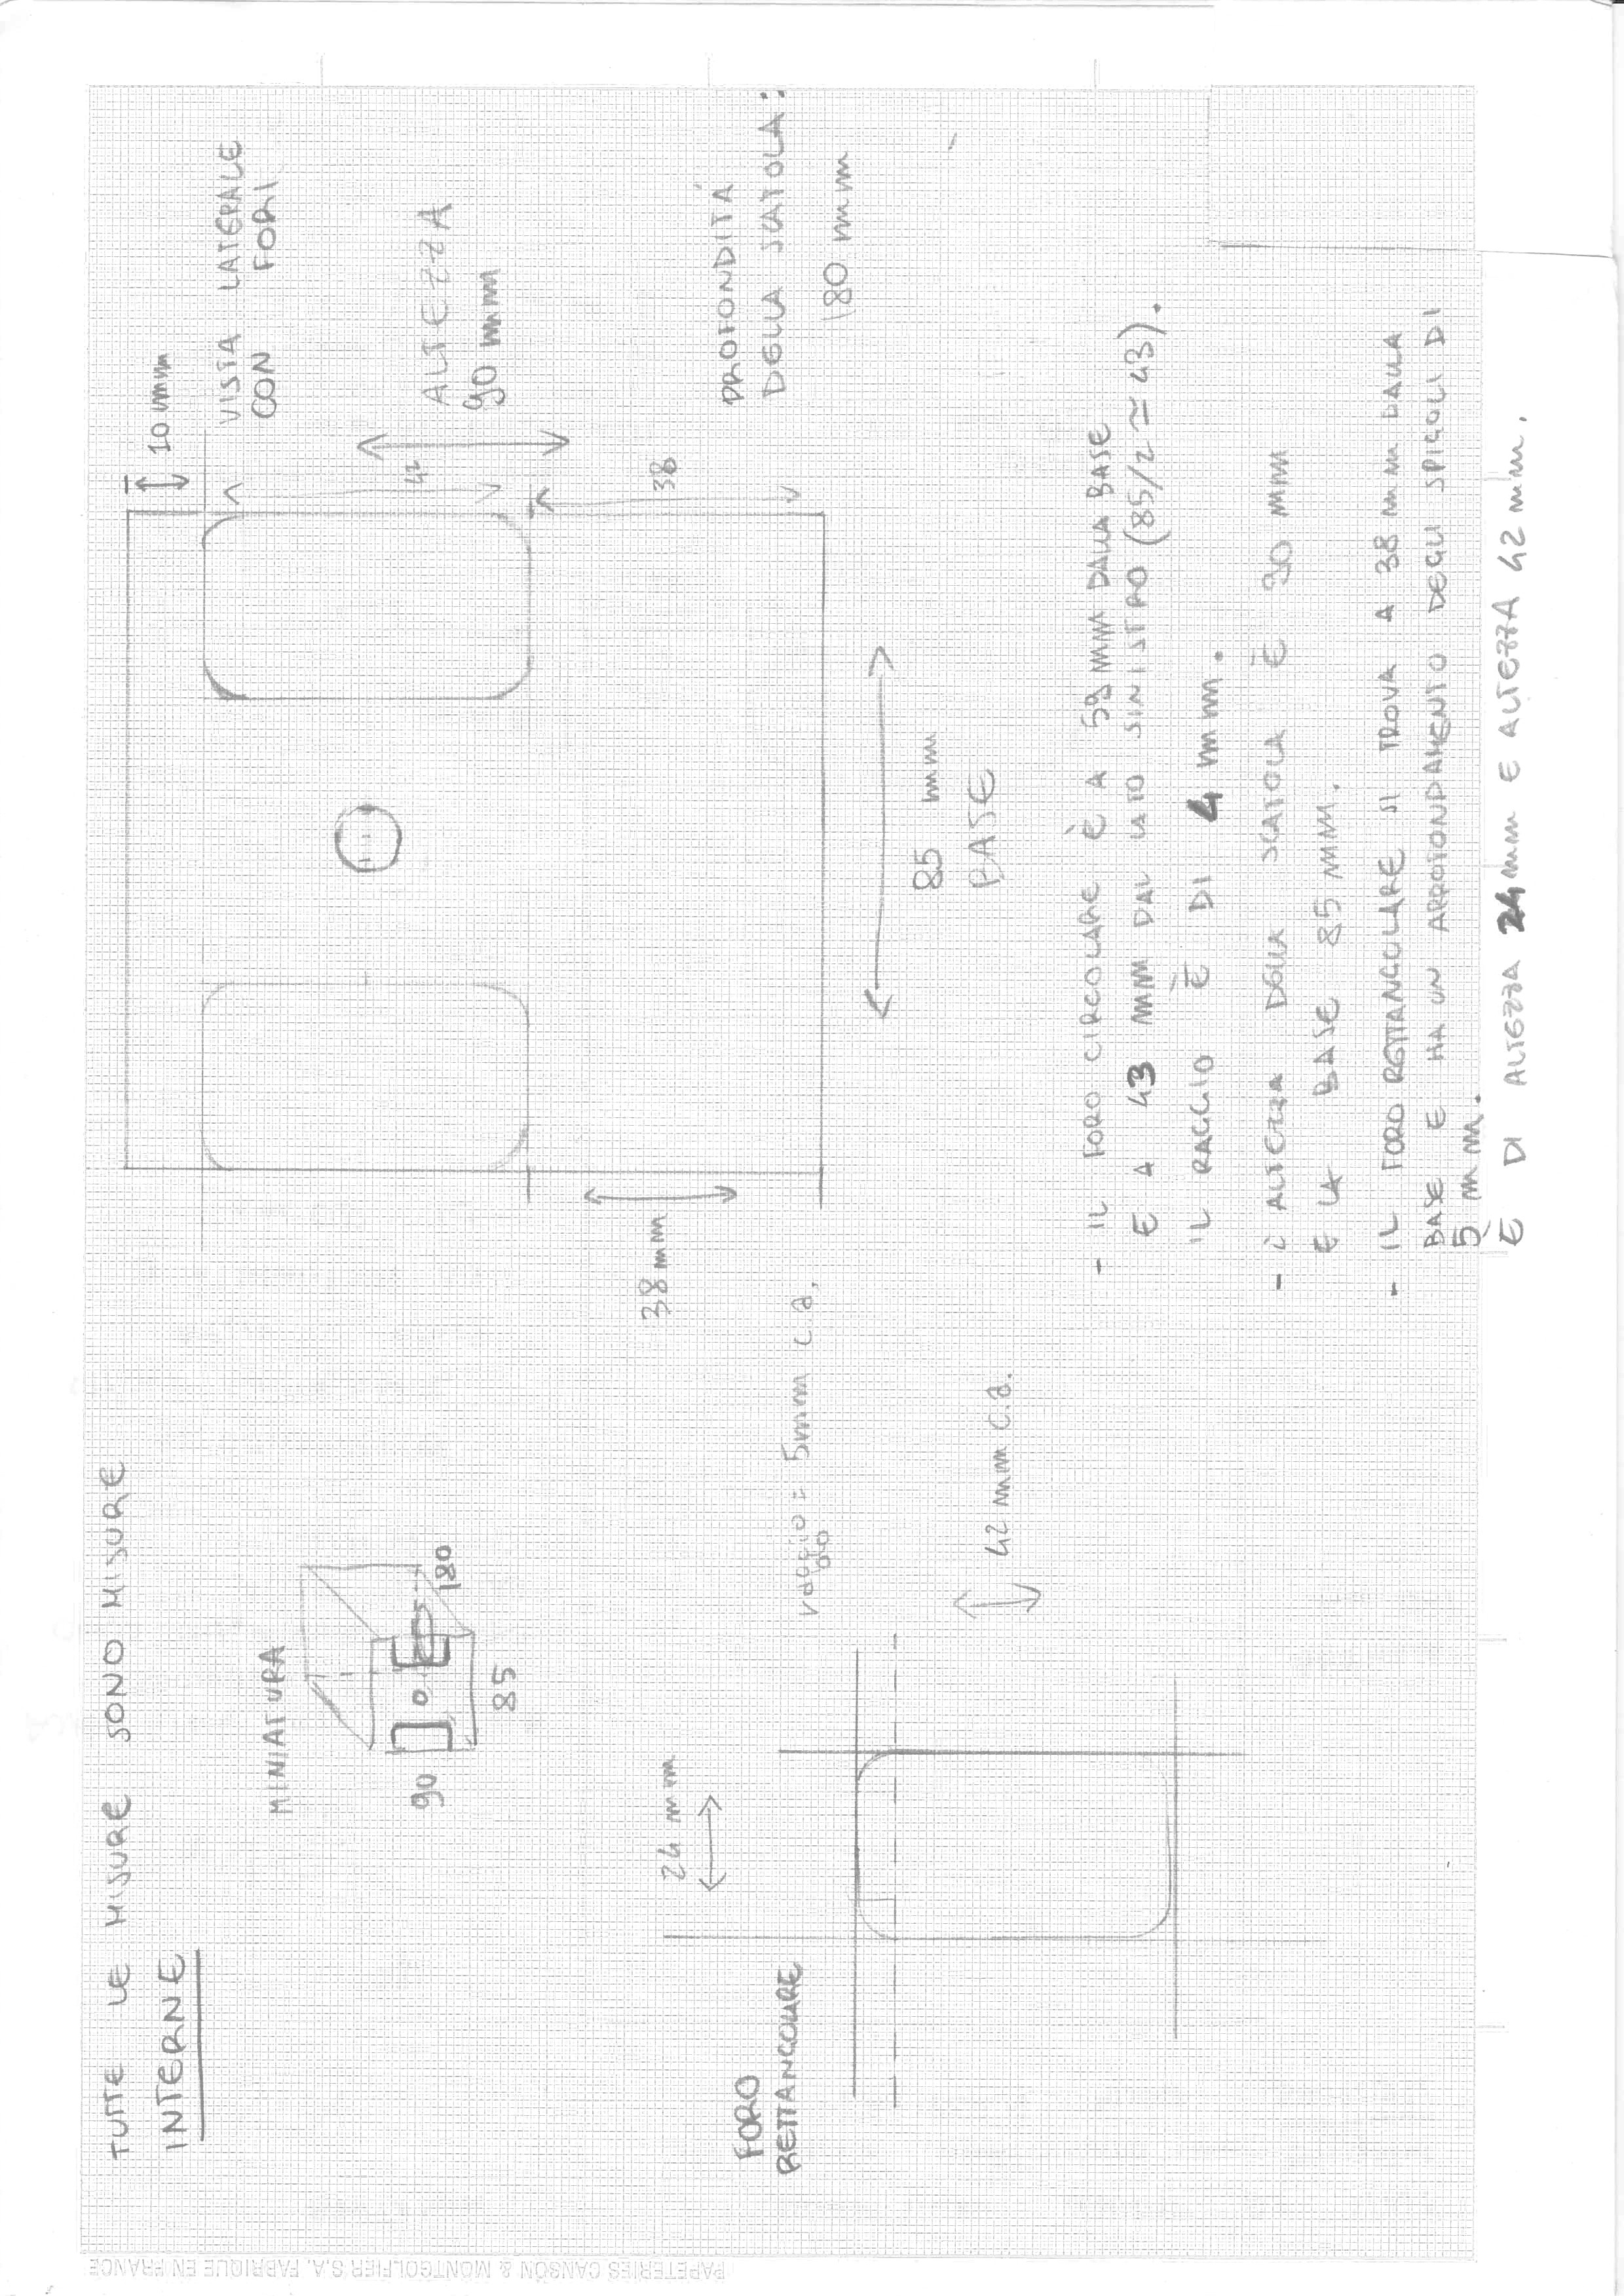 TUTTE LE MISURE SONO MISURE
INTERNE
PAPETERIES CANSON & MONTGOLFIER S.A. FABRIQUE EN FRANCE
MINIATURA
90
180
85
10 mm
VISTA LATERALE
CON FORI
42
ALTEZZA
90 mm
38 mm
38
PROFONDITÁ
DELLA SCATOLA:
180 mm
85 mm
BASE
24 mm
FORO
RETTANGOLARE
raggio = 5mm c.a.
42 mm c.a.
- IL FORO CIRCOLARE È A 59 mm DALLA BASE
E A 43 mm DAL LATO SINISTRO (85/2 ≃ 43).
IL RAGGIO È DI 4 mm.
- L'ALTEZZA DELLA SCATOLA È 90 mm
E LA BASE 85 mm.
- IL FORO RETTANGOLARE SI TROVA A 38 mm DALLA
BASE E HA UN ARROTONDAMENTO DEGLI SPIGOLI DI
5 mm.
È DI ALTEZZA 24 mm E ALTEZZA 42 mm.